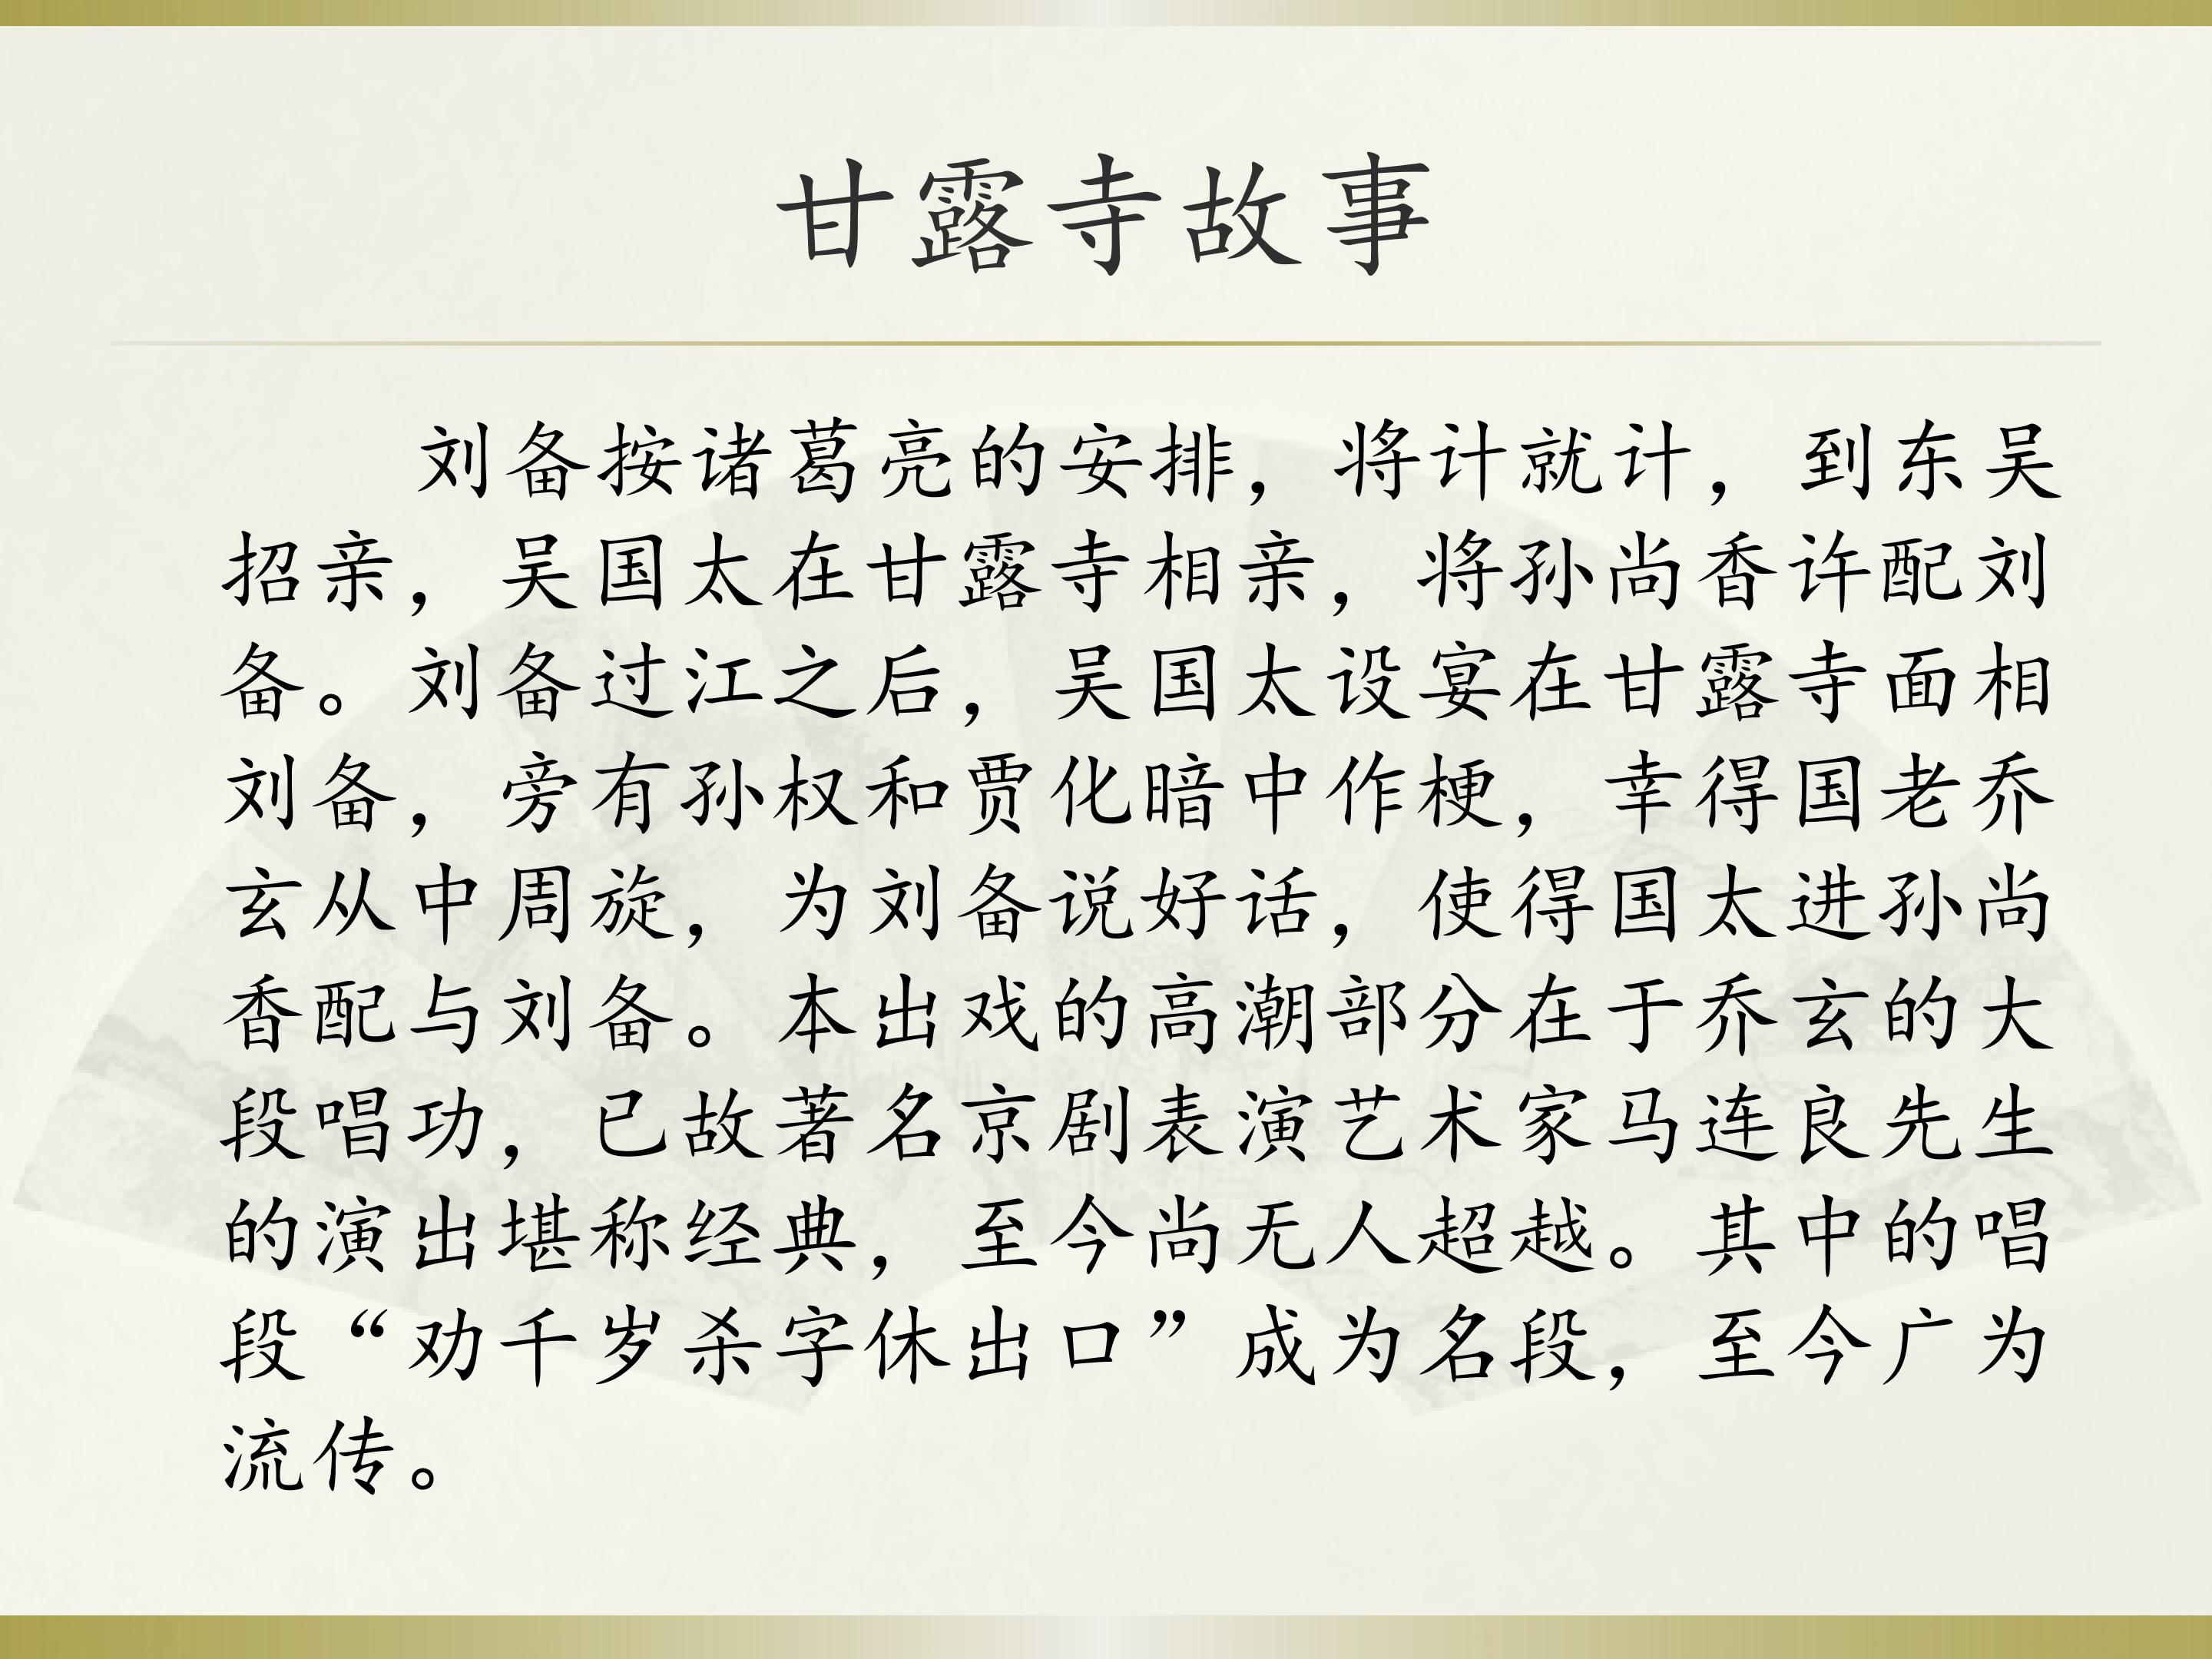 甘露寺故事
刘备按诸葛亮的安排，将计就计，到东吴
招亲，吴国太在甘露寺相亲，将孙尚香许配刘
备。刘备过江之后，吴国太设宴在甘露寺面相
刘备，旁有孙权和贾化暗中作梗，幸得国老乔
玄从中周旋，为刘备说好话，使得国太进孙尚
香配与刘备。本出戏的高潮部分在于乔玄的大
段唱功，已故著名京剧表演艺术家马连良先生
的演出堪称经典，至今尚无人超越。其中的唱
段“劝千岁杀字休出口”成为名段，至今广为
流传。